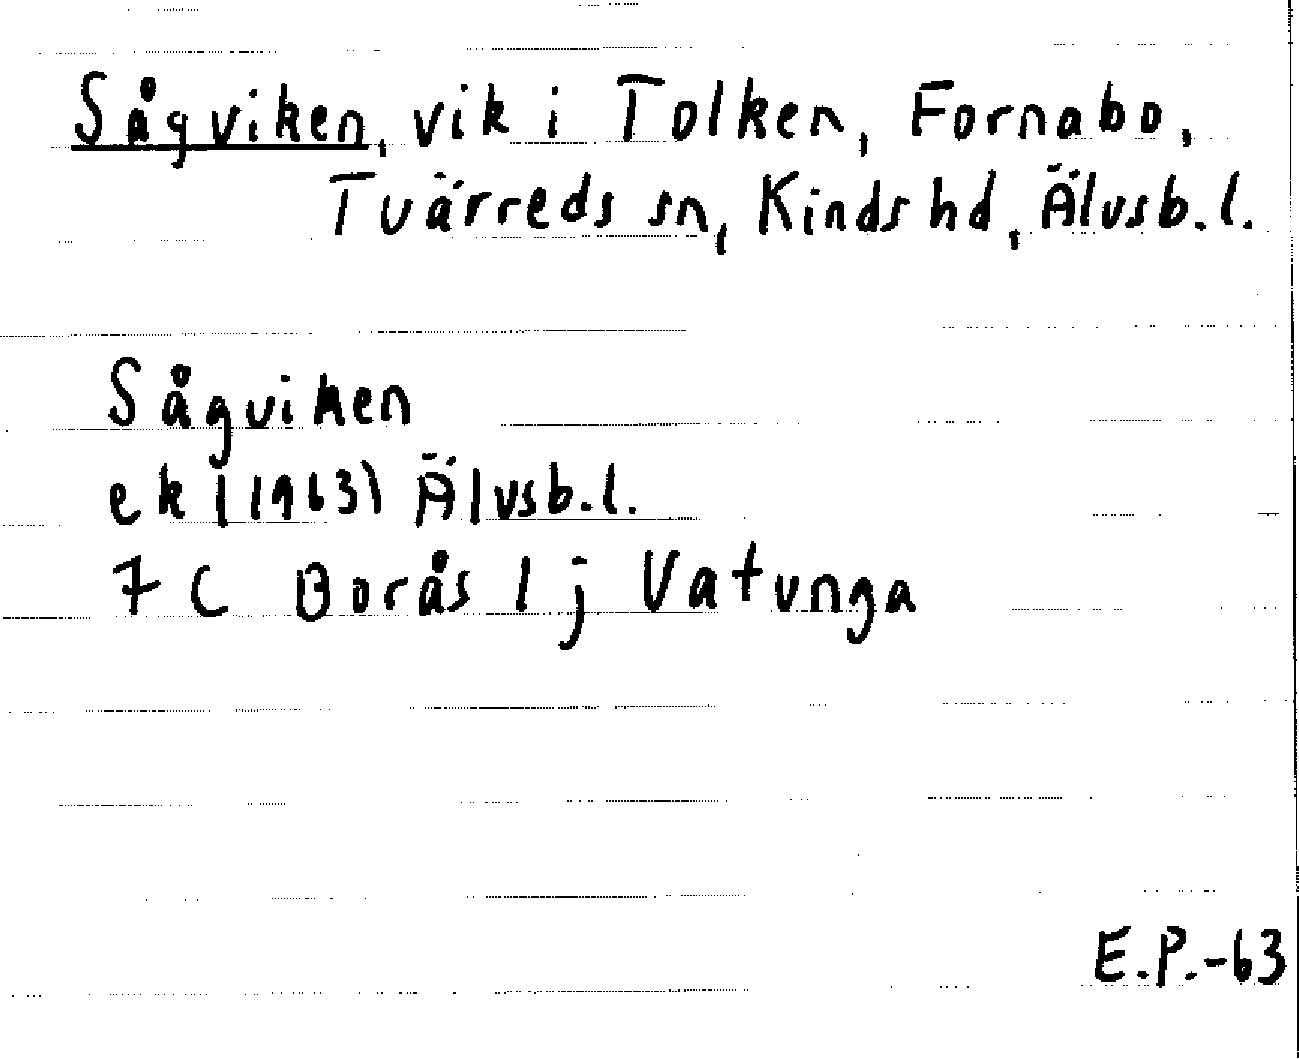 Sågviken, vik i Tolken, Fornabo,
Tvärreds sn, Kinds hd, Älvsb.l.
Sågviken
ek (1963) Älvsb.l.
7 C Borås 1 j Vatunga
E.P.-63